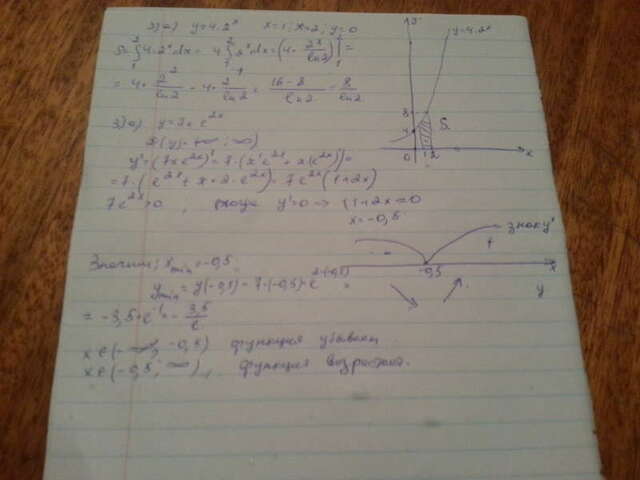 2) a) y=4·2ˣ x=1; x=2; y=0
S=∫₁² 4·2ˣ dx = 4 ∫₁² 2ˣ dx = (4· 2ˣ/ln2)|₁² =
= 4· 2²/ln2 - 4· 2¹/ln2 = 16-8/ln2 = 8/ln2
y=4·2ˣ
8
4
S
0 1 2 x
3) a) y=7x e²ˣ
y'=(7xe²ˣ)'=7·(x'e²ˣ+x(e²ˣ)')=
=7·(e²ˣ+x·2·e²ˣ)=7e²ˣ(1+2x)
7e²ˣ>0, y'=0 => 1+2x=0
x=-0,5
знак y'
- +
-0,5 x
y
Значит: xmin=-0,5
ymin=y(-0,5)=7·(-0,5)·e²·⁽⁻⁰,⁵⁾=
= -3,5·e⁻¹=- 3,5/e
x∈(-∞; -0,5) функция убывает
x∈(-0,5; ∞), функция возрастает.